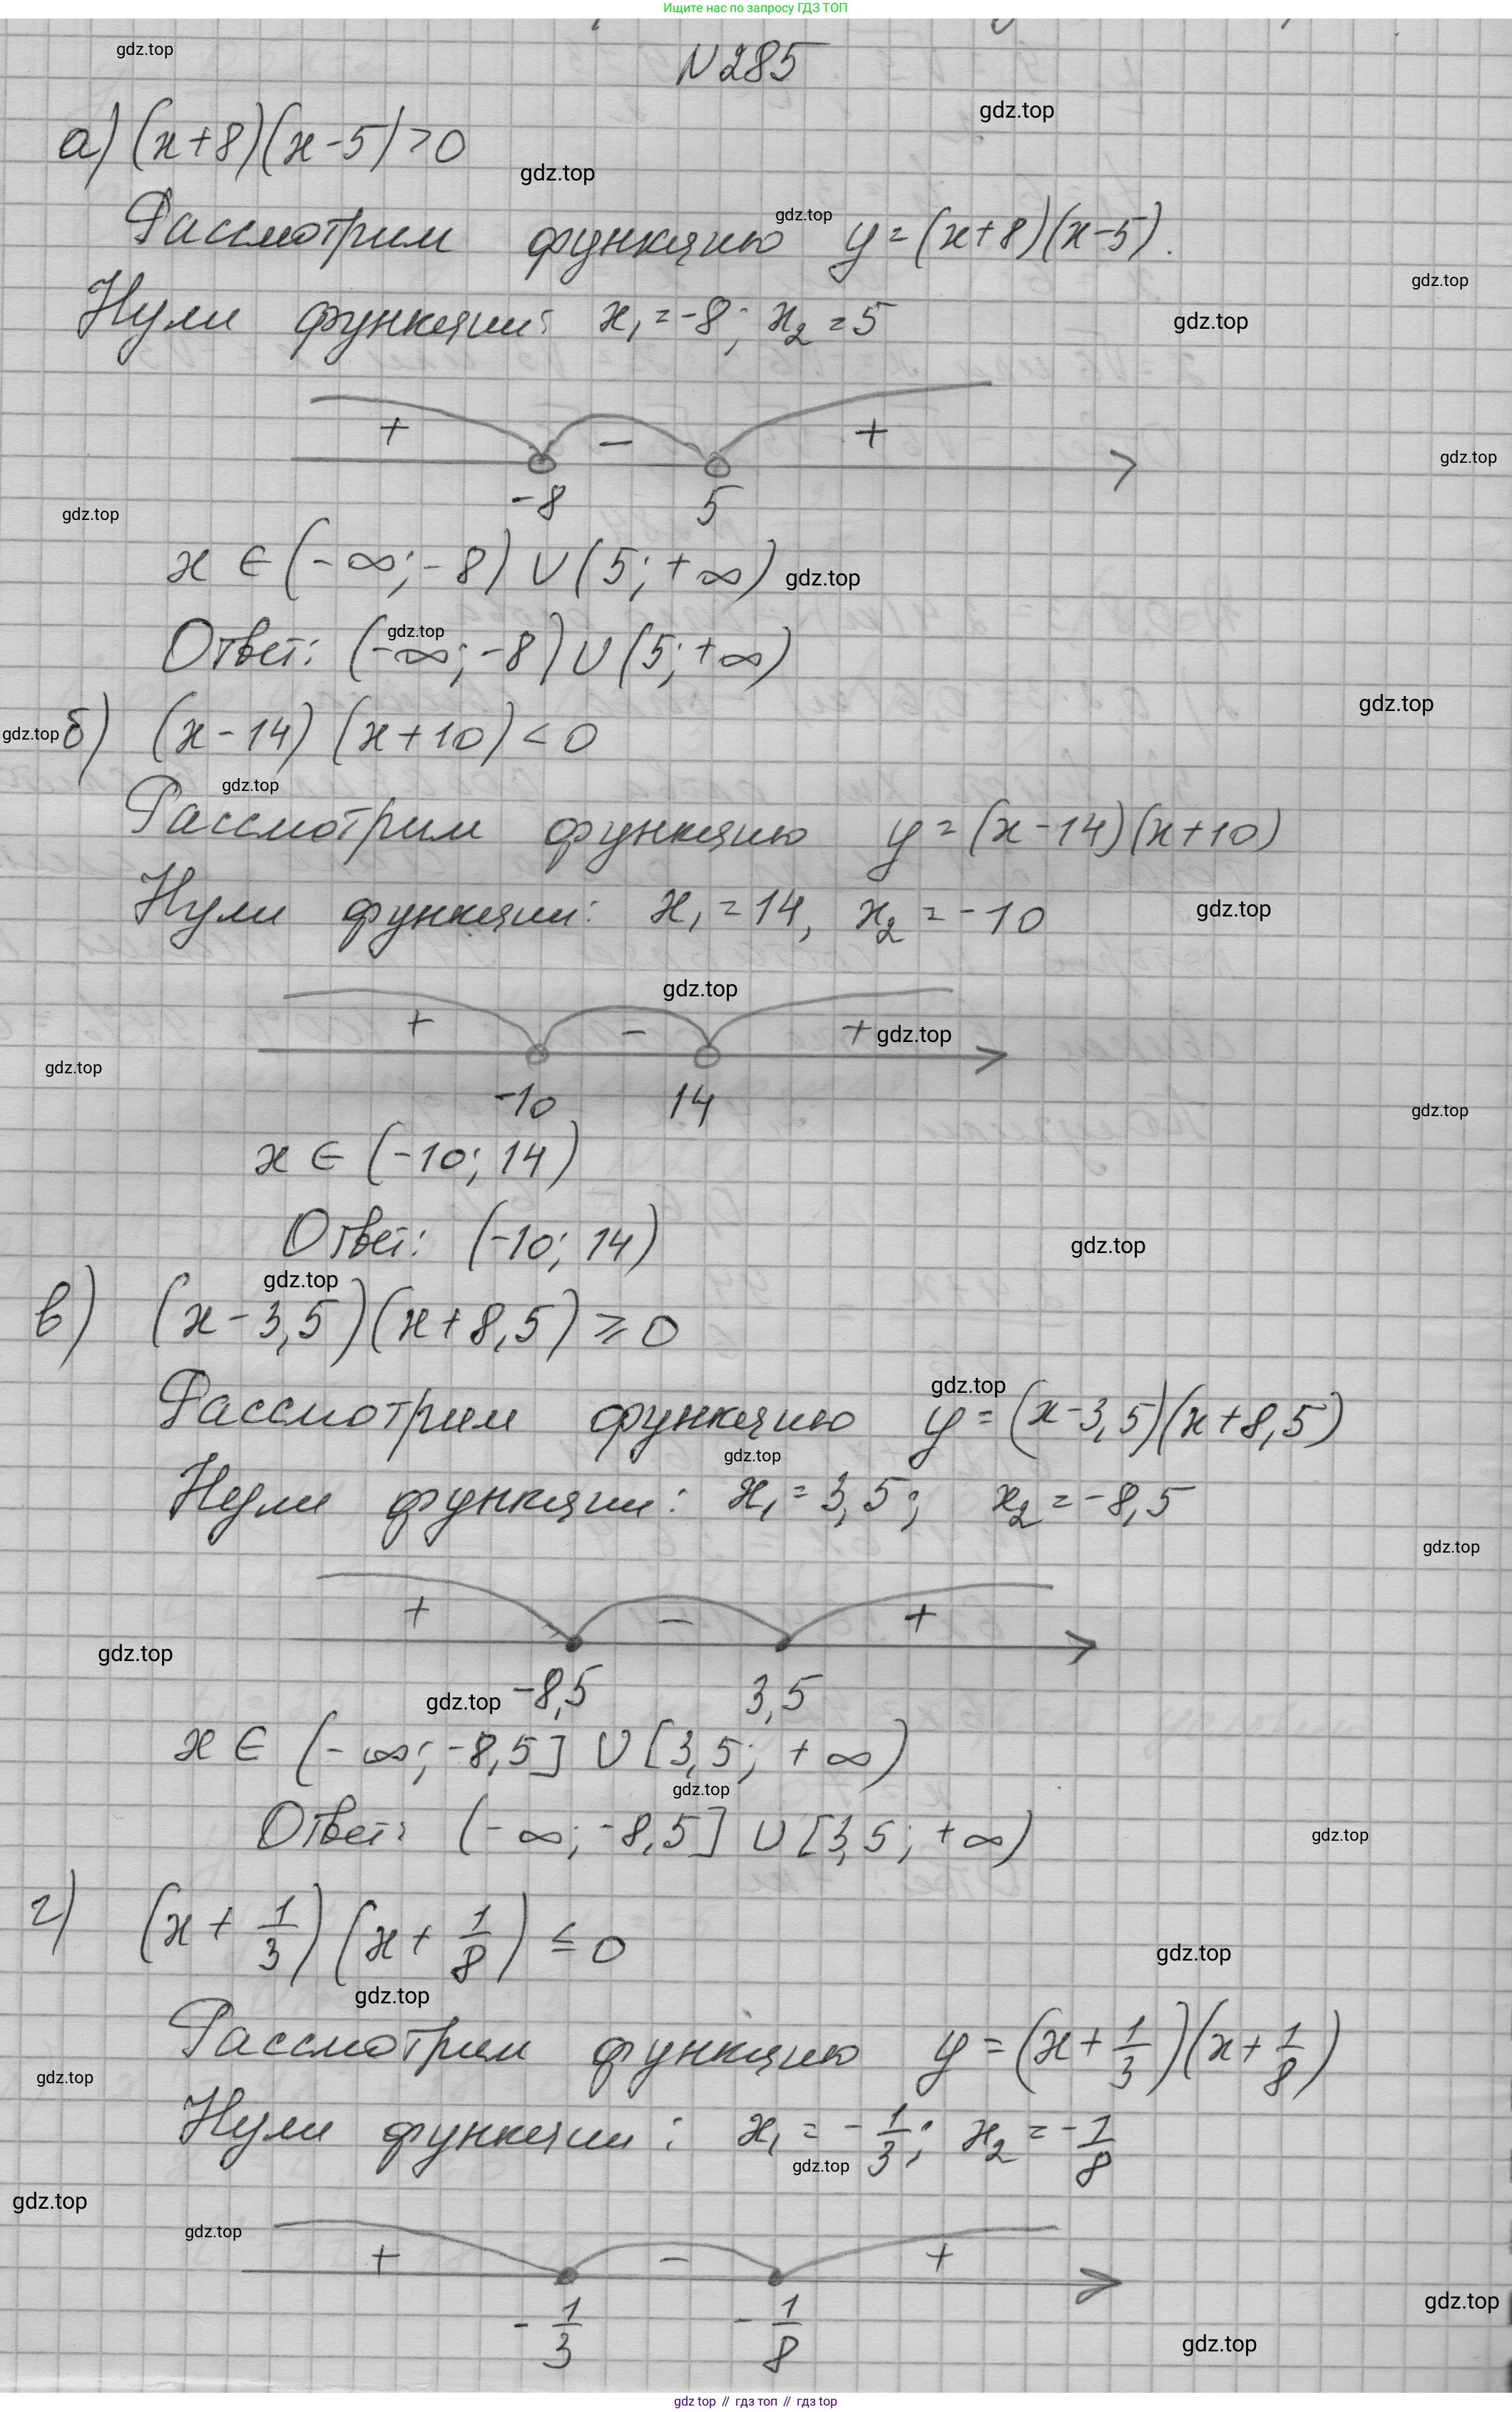 Ищите нас по запросу ГДЗ ТОП
N285
а) (x+8)(x-5)>0
Рассмотрим функцию y=(x+8)(x-5).
Нули функции: x₁=-8; x₂=5
+ - +
-8 5
x ∈ (-∞;-8) ∪ (5;+∞)
Ответ: (-∞;-8) ∪ (5;+∞)
б) (x-14)(x+10)<0
Рассмотрим функцию y=(x-14)(x+10)
Нули функции: x₁=14, x₂=-10
+ - +
-10 14
x ∈ (-10; 14)
Ответ: (-10; 14)
в) (x-3,5)(x+8,5)≥0
Рассмотрим функцию y=(x-3,5)(x+8,5)
Нули функции: x₁=3,5; x₂=-8,5
+ - +
-8,5 3,5
x ∈ (-∞; -8,5] ∪ [3,5; +∞)
Ответ: (-∞; -8,5] ∪ [3,5; +∞)
г) (x+1/3)(x+1/8)≤0
Рассмотрим функцию y=(x+1/3)(x+1/8)
Нули функции: x₁=-1/3; x₂=-1/8
+ - +
-1/3 -1/8
gdz top // гдз топ // гдз top